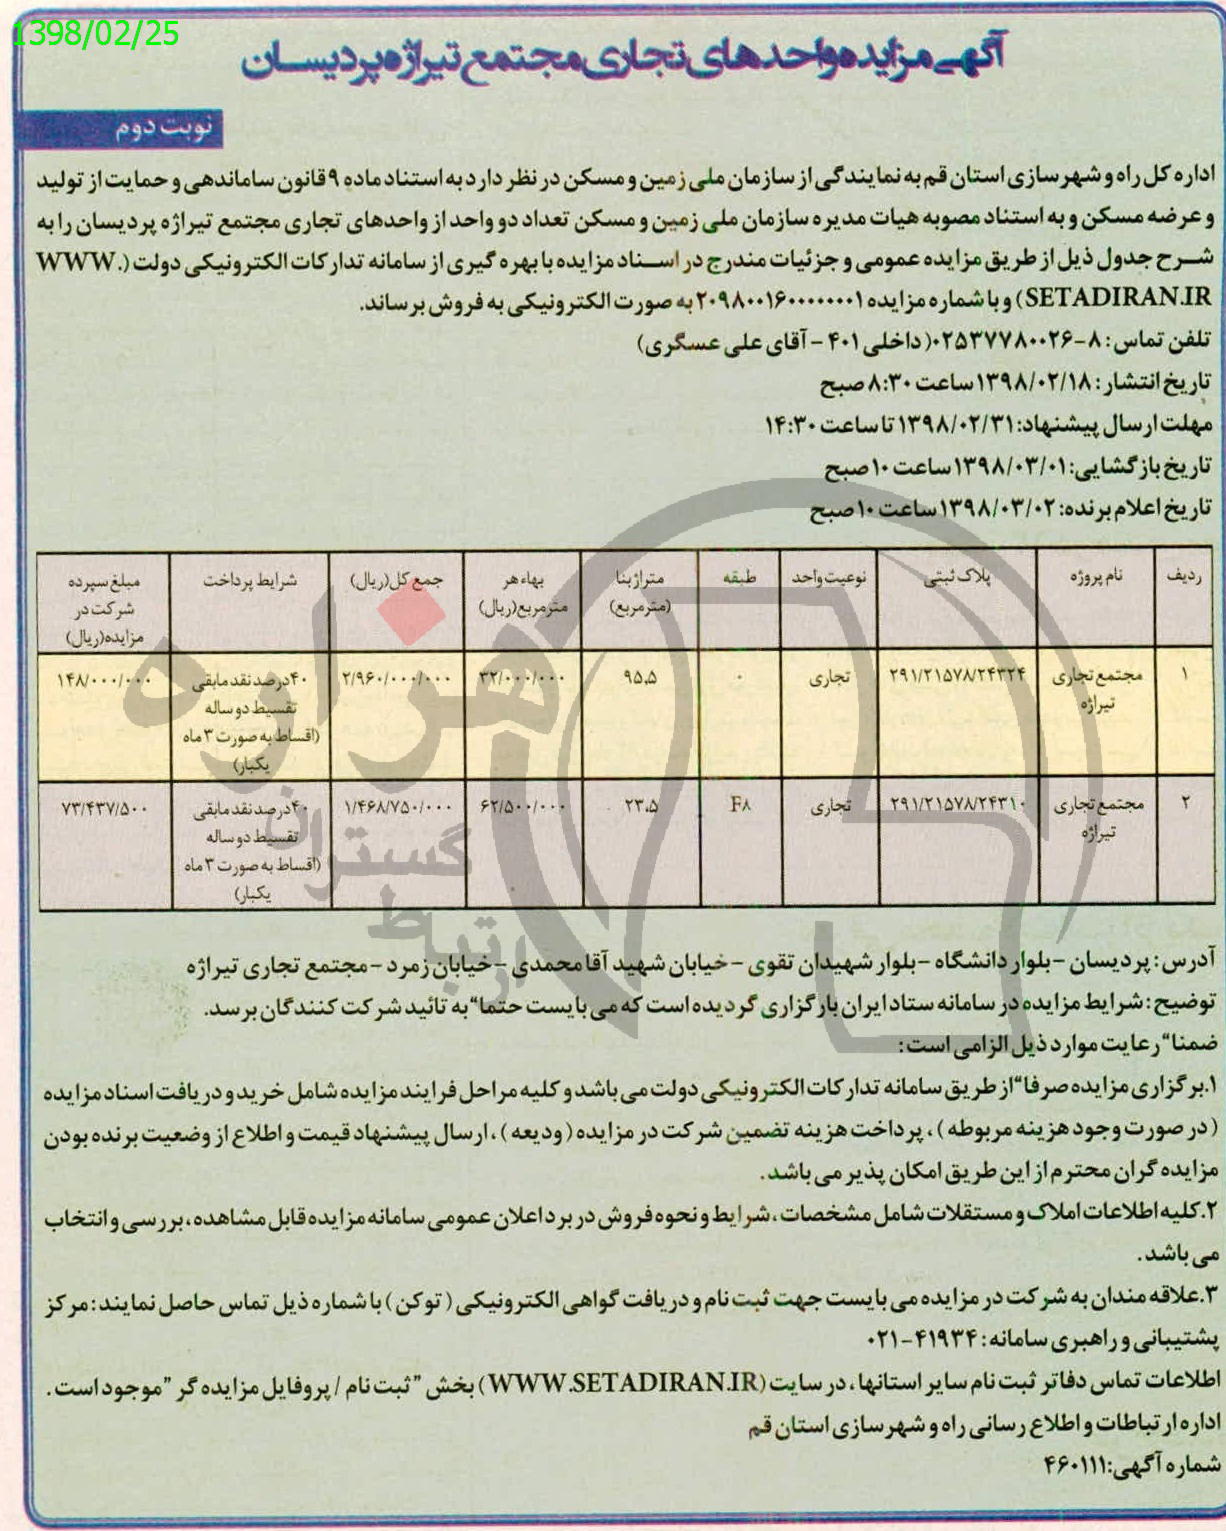 1398/02/25
آگهی مزایده واحدهای تجاری مجتمع تیراژه پردیسان
نوبت دوم
اداره کل راه و شهرسازی استان قم به نمایندگی از سازمان ملی زمین و مسکن در نظر دارد به استناد ماده ۹ قانون ساماندهی و حمایت از تولید
و عرضه مسکن و به استناد مصوبه هیات مدیره سازمان ملی زمین و مسکن تعداد دو واحد از واحدهای تجاری مجتمع تیراژه پردیسان را به
شرح جدول ذیل از طریق مزایده عمومی و جزئیات مندرج در اسناد مزایده با بهره گیری از سامانه تدارکات الکترونیکی دولت (WWW.
SETADIRAN.IR) و با شماره مزایده ۲۰۹۸۰۰۱۶۰۰۰۰۰۰۰۱ به صورت الکترونیکی به فروش برساند.
تلفن تماس: ۸-۰۲۵۳۷۷۸۰۰۲۶( داخلی ۴۰۱ - آقای علی عسگری)
تاریخ انتشار: ۱۳۹۸/۰۲/۱۸ ساعت ۸:۳۰ صبح
مهلت ارسال پیشنهاد: ۱۳۹۸/۰۲/۳۱ تا ساعت ۱۴:۳۰
تاریخ بازگشایی: ۱۳۹۸/۰۳/۰۱ ساعت ۱۰ صبح
تاریخ اعلام برنده: ۱۳۹۸/۰۳/۰۲ ساعت ۱۰ صبح
ردیف نام پروژه پلاک ثبتی نوعیت واحد طبقه متراژ بنا (مترمربع) بهاء هر مترمربع(ریال) جمع کل(ریال) شرایط پرداخت مبلغ سپرده شرکت در مزایده(ریال)
۱ مجتمع تجاری تیراژه ۲۹۱/۲۱۵۷۸/۲۴۳۲۴ تجاری ۰ ۹۵.۵ ۳۲/۰۰۰/۰۰۰ ۲/۹۶۰/۰۰۰/۰۰۰ ۴۰درصد نقد مابقی تقسیط دو ساله (اقساط به صورت ۳ ماه یکبار) ۱۴۸/۰۰۰/۰۰۰
۲ مجتمع تجاری تیراژه ۲۹۱/۲۱۵۷۸/۲۴۳۱۰ تجاری F۸ ۲۳.۵ ۶۲/۵۰۰/۰۰۰ ۱/۴۶۸/۷۵۰/۰۰۰ ۴۰درصد نقد مابقی تقسیط دو ساله (اقساط به صورت ۳ ماه یکبار) ۷۳/۴۳۷/۵۰۰
هزاره
گستران
ارتباط
آدرس: پردیسان - بلوار دانشگاه - بلوار شهیدان تقوی - خیابان شهید آقامحمدی - خیابان زمرد - مجتمع تجاری تیراژه
توضیح: شرایط مزایده در سامانه ستاد ایران بارگزاری گردیده است که می بایست حتما“ به تائید شرکت کنندگان برسد.
ضمنا“ رعایت موارد ذیل الزامی است:
۱.برگزاری مزایده صرفا“ از طریق سامانه تدارکات الکترونیکی دولت می باشد و کلیه مراحل فرایند مزایده شامل خرید و دریافت اسناد مزایده
( در صورت وجود هزینه مربوطه )، پرداخت هزینه تضمین شرکت در مزایده ( ودیعه )، ارسال پیشنهاد قیمت و اطلاع از وضعیت برنده بودن
مزایده گران محترم از این طریق امکان پذیر می باشد.
۲.کلیه اطلاعات املاک و مستقلات شامل مشخصات، شرایط و نحوه فروش در برد اعلان عمومی سامانه مزایده قابل مشاهده، بررسی و انتخاب
می باشد.
۳.علاقه مندان به شرکت در مزایده می بایست جهت ثبت نام و دریافت گواهی الکترونیکی ( توکن ) با شماره ذیل تماس حاصل نمایند: مرکز
پشتیبانی و راهبری سامانه: ۴۱۹۳۴-۰۲۱
اطلاعات تماس دفاتر ثبت نام سایر استانها، در سایت (WWW.SETADIRAN.IR) بخش ”ثبت نام / پروفایل مزایده گر ”موجود است.
اداره ارتباطات و اطلاع رسانی راه و شهرسازی استان قم
شماره آگهی: ۴۶۰۱۱۱